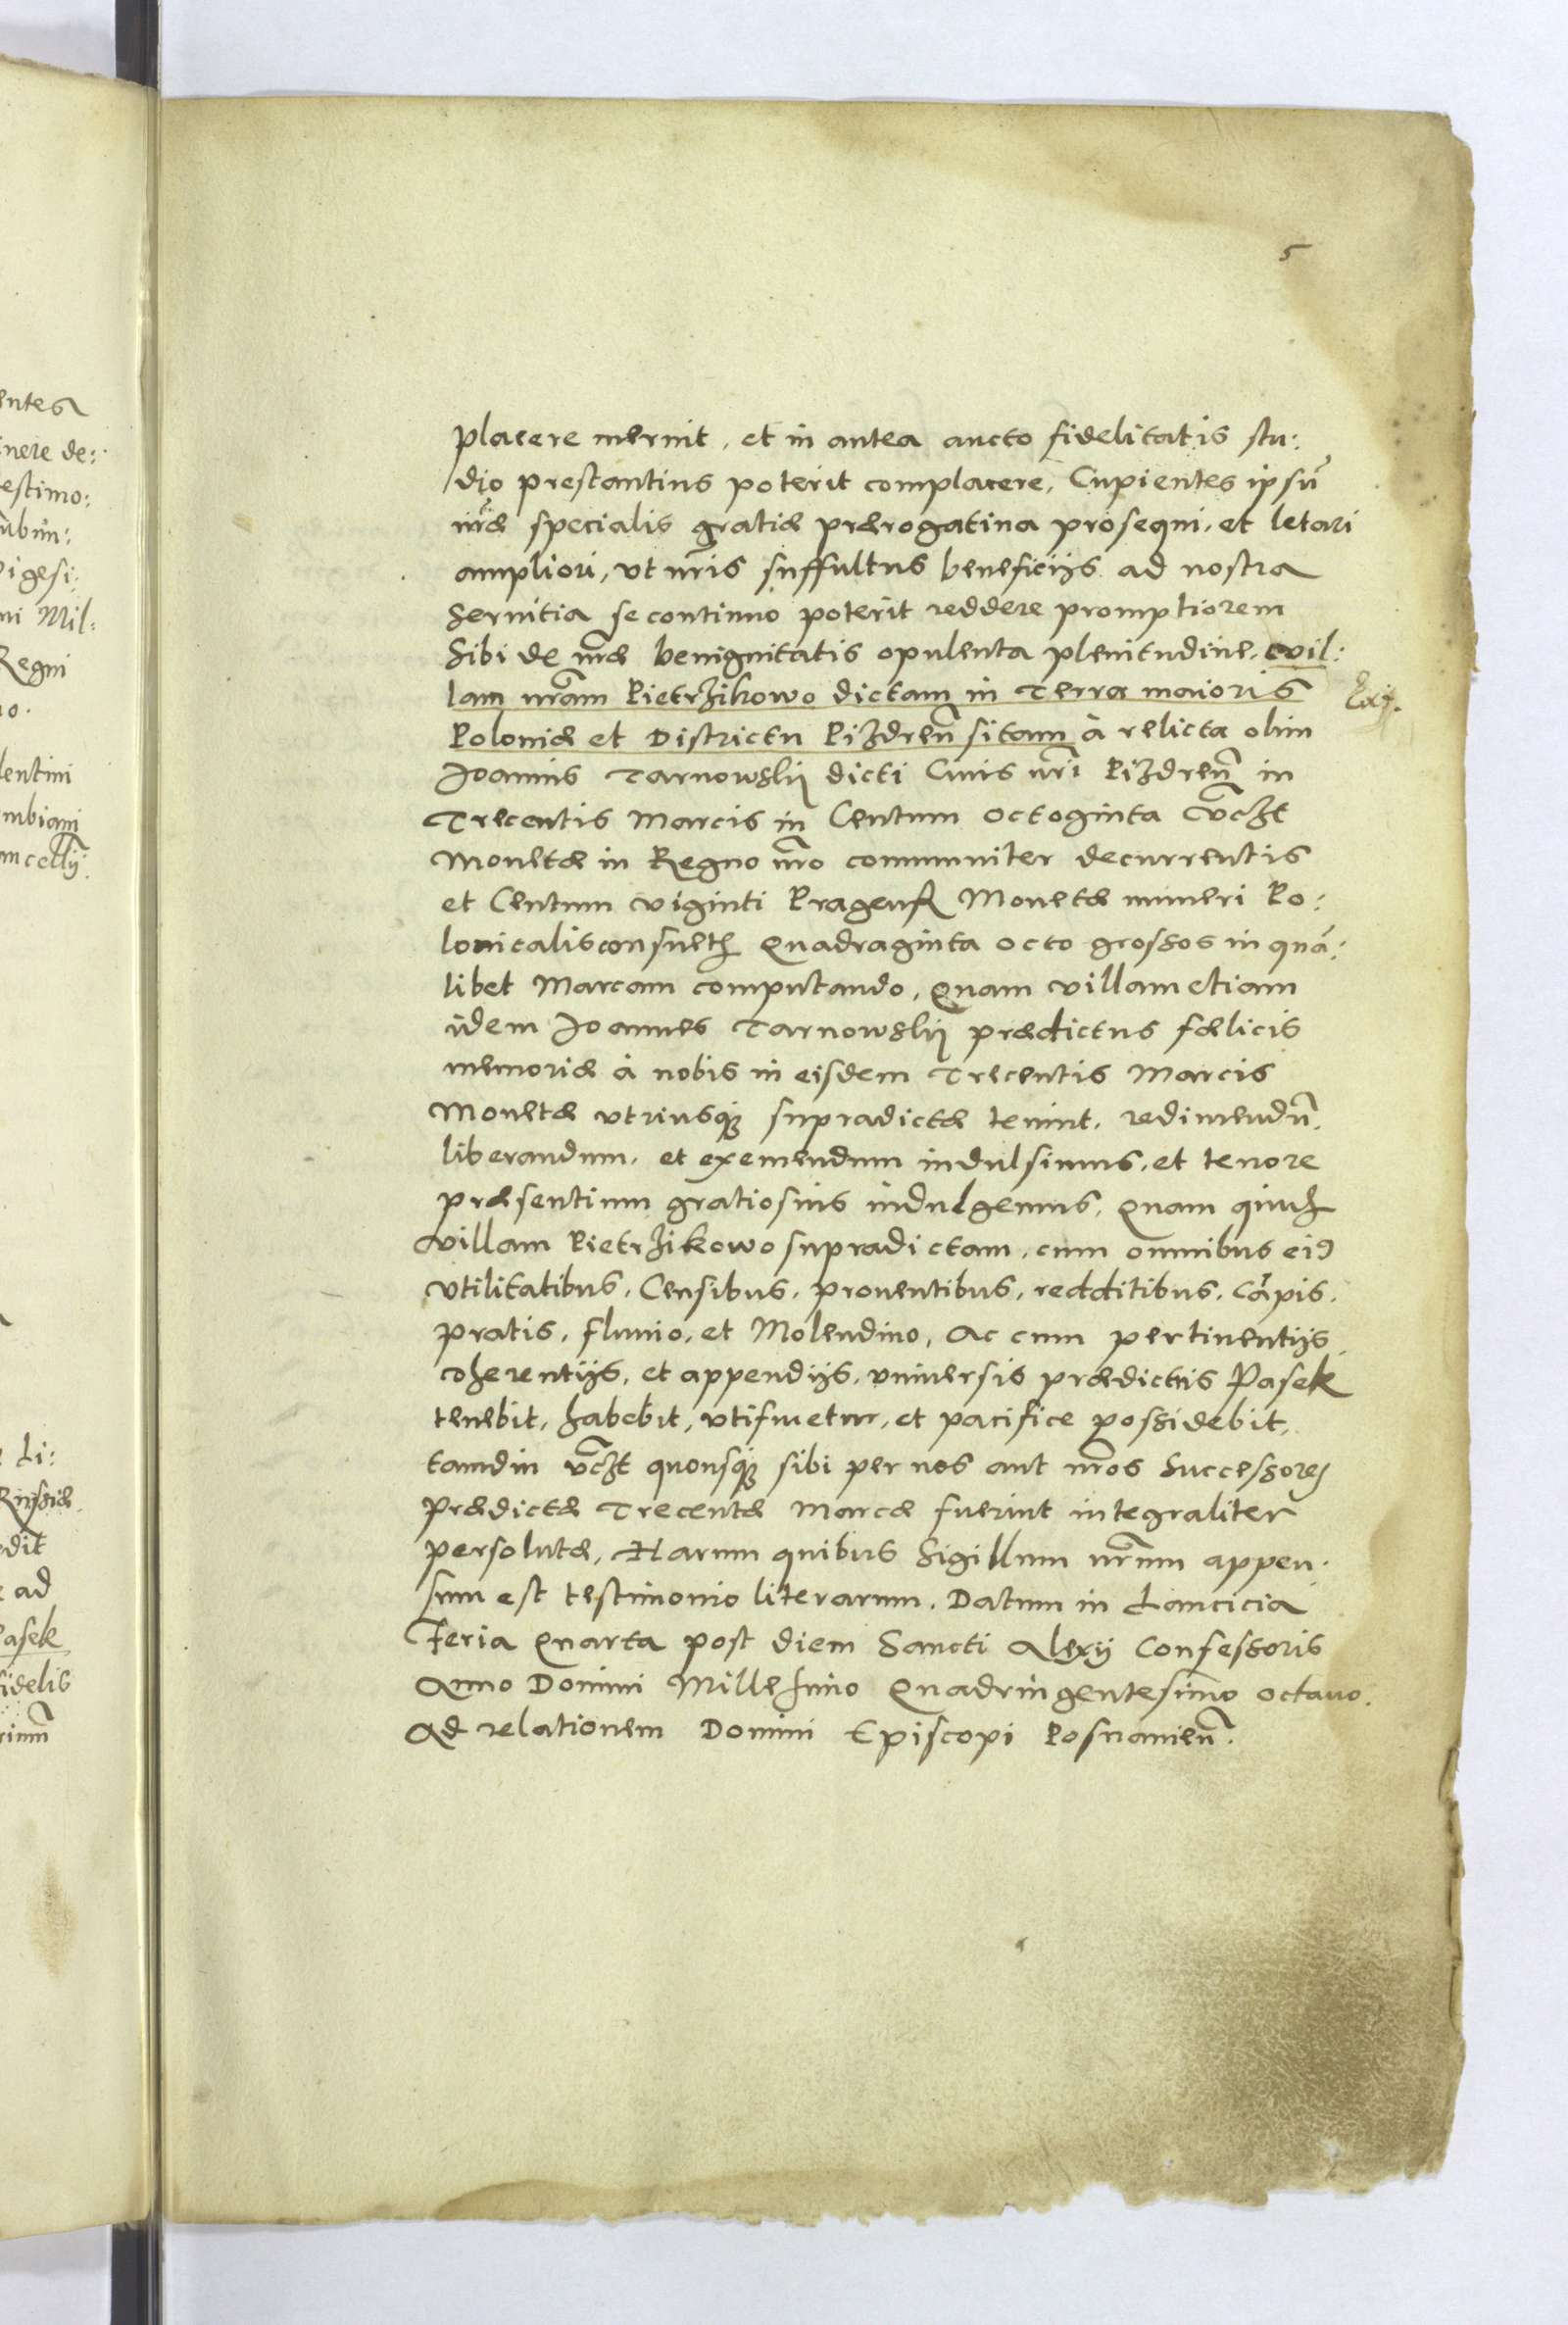 5
placere meruit, et in antea aucto fidelitatis stu:
dio prestantius poterit complacere, Cupientes ipsū
nr̄æ specialis gratiæ prærogatiua prosequi, et letari
ampliori, vt nr̄is suffultus beneficijs ad nostra
seruitia se continuo poterit reddere promptiorem
Sibi de nr̄æ benignitatis opulenta plenitudine, vil:
lam nr̄am Pietrzikowo dictam in Terra maioris
Poloniæ et Districtu Pizdreñ sitam à relicta olim
Joannis Tarnowskij dicti Ciuis nr̄i Pizdreñ in
Trecentis Marcis in Centum Octoginta vczt
Monetæ in Regno nr̄o communiter decurrentis
et Centum viginti Pragens Monetæ numeri Po:
lonicalis consueth Quadraginta octo grossos in quā:
libet Marcam computando, Quam villam etiam
idem Joannes Tarnowskij prædictus fælicis
memoriæ à nobis in eisdem Trecentis Marcis
Monetæ vtriusq̃ supradictæ tenuit, redimendū,
liberandum, et exemendum indulsimus, et tenore
præsentium gratiosius indulgemus, Quam
villam Pietrzikowo supradictam, cum omnibus eis
vtilitatibus, Censibus, prouentibus, redditibus, Cāpis,
pratis, fluuio, et Molendino, Ac cum pertinentijs,
coherentijs, et appendijs, vniuersis prædictis Pasek
tenebit, habebit, vtifruetur, et pacifice possidebit,
tamdiu vczt quousq̃ sibi per nos aut nr̄os Successores
Prædictæ Trecentæ Marcæ fuerint integraliter
persolutæ, Harum quibus Sigillum nr̄um appen:
sum est testimonio literarum. Datum in Lancicia
Feria Quarta post diem Sancti Alexij Confessoris
Anno Domini Millesimo Quadringentesimo octauo.
Ad relationem Domini Episcopi Posnanieñ.